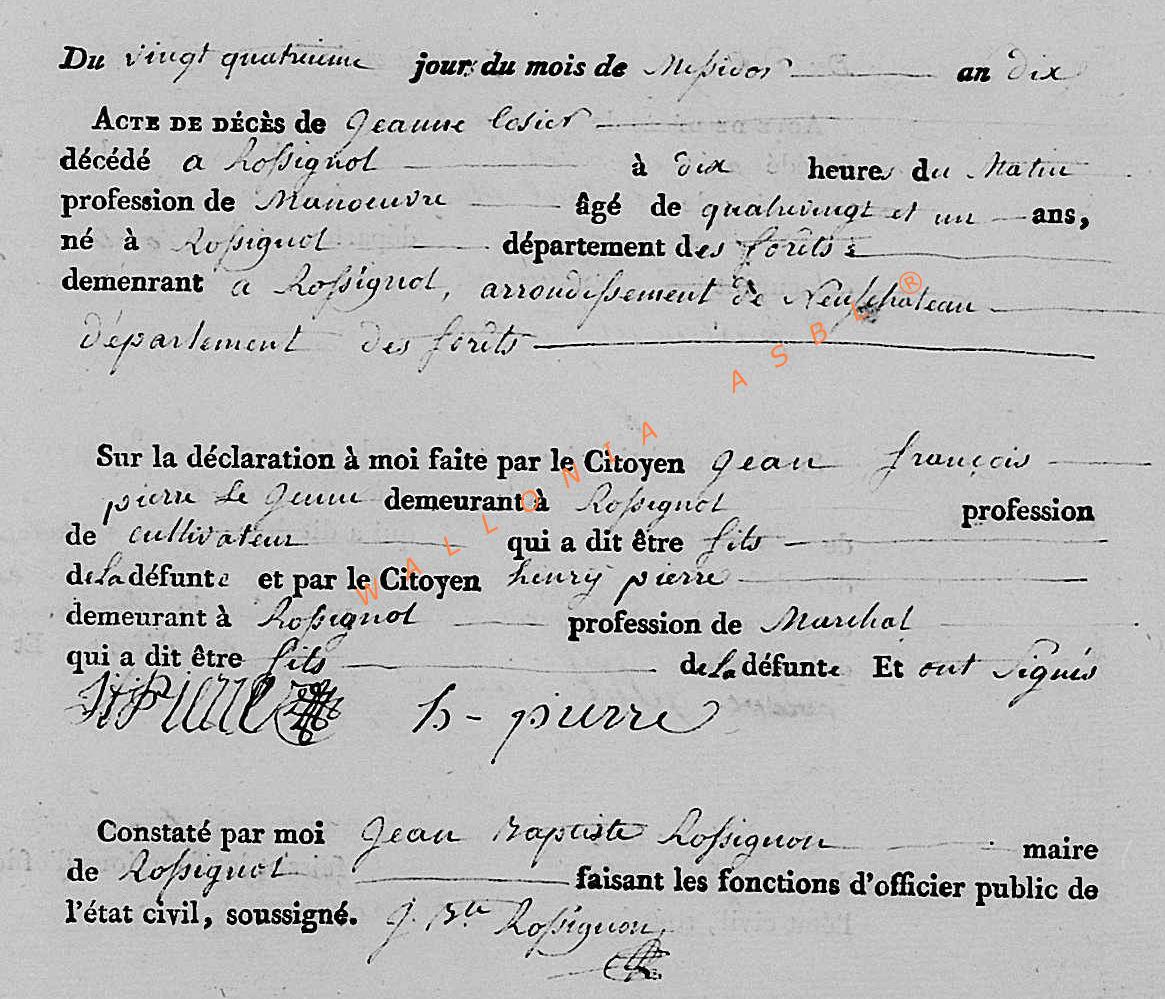 Du vingt quatrieme jour du mois de Messidor an dix
ACTE DE DÉCÈS de Jeanne Cosier
décédé a Rossignol à dix heures du Matin
profession de Manoeuvre âgé de quatrevingt et un ans,
né à Rossignol département des forêts
demenrant a Rossignol, arrondissement de Neufchateau
département des forêts
Sur la déclaration à moi faite par le Citoyen Jean françois
pierre Le Jeune demeurant à Rossignol profession
de cultivateur qui a dit être fils
de la défunte et par le Citoyen henry pierre
demeurant à Rossignol profession de Marchal
qui a dit être fils de la défunte Et ont Signés
h - pierre
Constaté par moi Jean Baptiste Rossignon maire
de Rossignol faisant les fonctions d'officier public de
l'état civil, soussigné. J. Bte Rossignon
WALLONIA ASBL ®